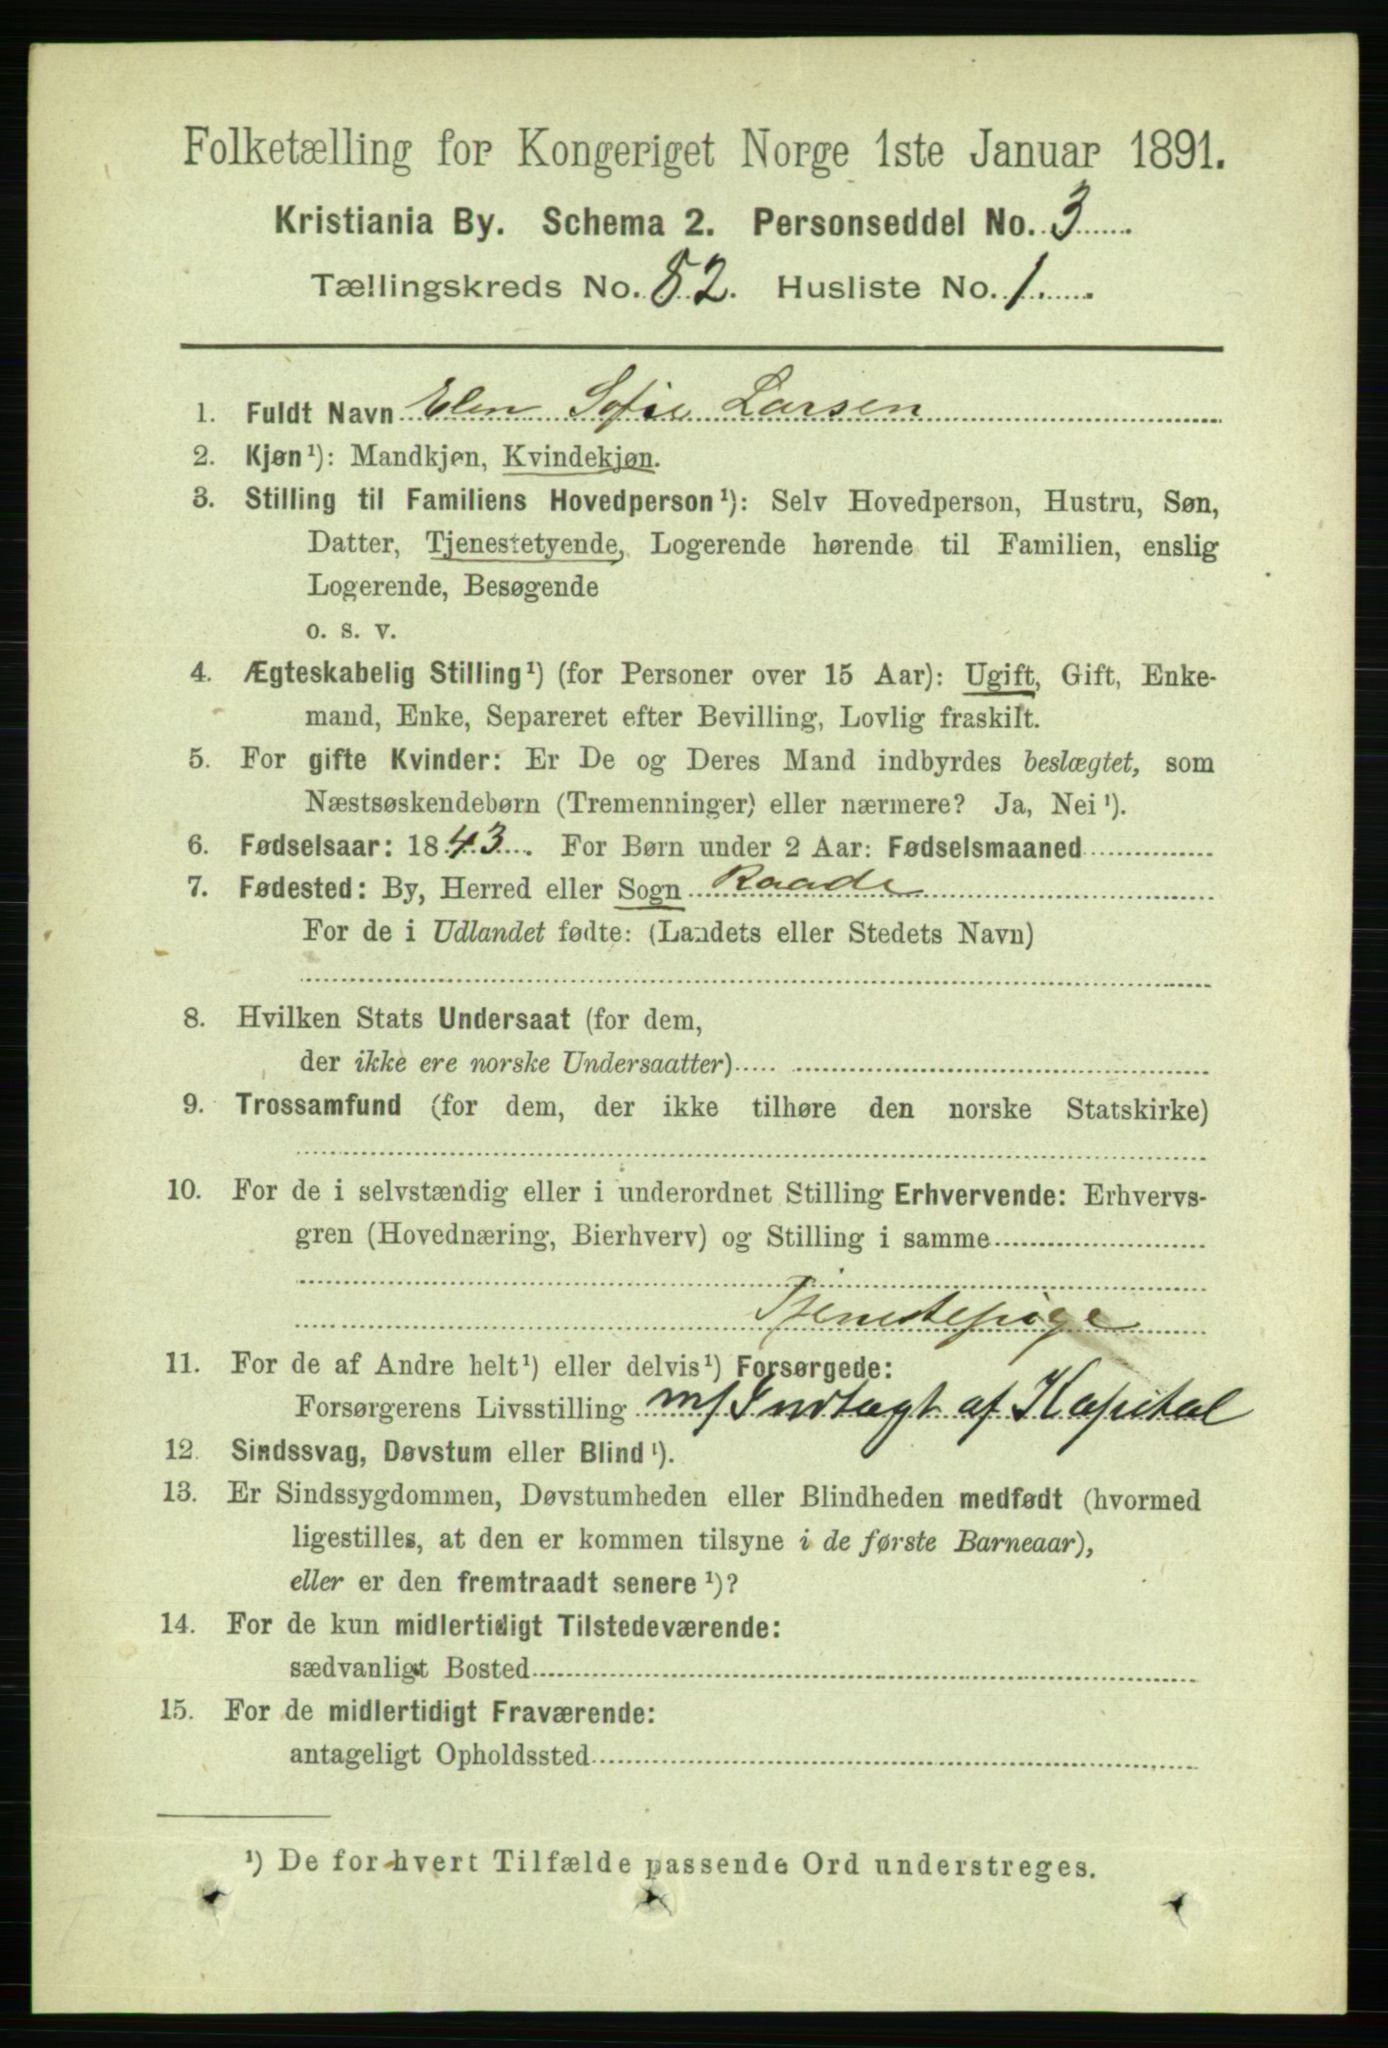 Folketælling for Kongeriget Norge 1ste Januar 1891.
Kristiania By. Schema 2. Personseddel No. 3
Tællingskreds No. 82. Husliste No. 1
1. Fuldt Navn Elen Sofie Larsen
2. Kjøn¹): Mandkjøn, Kvindekjøn.
3. Stilling til Familiens Hovedperson¹): Selv Hovedperson, Hustru, Søn,
Datter, Tjenestetyende, Logerende hørende til Familien, enslig
Logerende, Besøgende
o. s. v.
4. Ægteskabelig Stilling¹) (for Personer over 15 Aar): Ugift, Gift, Enke-
mand, Enke, Separeret efter Bevilling, Lovlig fraskilt.
5. For gifte Kvinder: Er De og Deres Mand indbyrdes beslægtet, som
Næstsøskendebørn (Tremenninger) eller nærmere? Ja, Nei¹).
6. Fødselsaar: 1843. For Børn under 2 Aar: Fødselsmaaned
7. Fødested: By, Herred eller Sogn Raade
For de i Udlandet fødte: (Landets eller Stedets Navn)
8. Hvilken Stats Undersaat (for dem,
der ikke ere norske Undersaatter)
9. Trossamfund (for dem, der ikke tilhøre den norske Statskirke)
10. For de i selvstændig eller i underordnet Stilling Erhvervende: Erhvervs-
gren (Hovednæring, Bierhverv) og Stilling i samme
Tjenestepige
11. For de af Andre helt¹) eller delvis¹) Forsørgede:
Forsørgerens Livsstilling m/ Indtægt af Kapital
12. Sindssvag, Døvstum eller Blind¹).
13. Er Sindssygdommen, Døvstumheden eller Blindheden medfødt (hvormed
ligestilles, at den er kommen tilsyne i de første Barneaar),
eller er den fremtraadt senere¹)?
14. For de kun midlertidigt Tilstedeværende:
sædvanligt Bosted
15. For de midlertidigt Fraværende:
antageligt Opholdssted
¹) De for hvert Tilfælde passende Ord understreges.